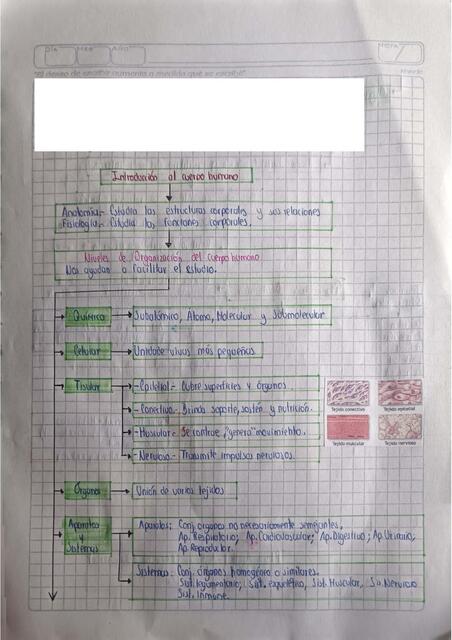 DIA MES AÑO HORA
"El deseo de escribir aumenta a medida que se escribe"
Introducción al cuerpo humano
Anatomía.- Estudia las estructuras corporales y sus relaciones
Fisiología.- Estudia las funciones corporales.
Niveles de Organización del cuerpo humano
Nos ayudan a facilitar el estudio.
Química
Subatómico, Átomo, Molecular y submolecular
Celular
Unidade vivas más pequeñas
Tisular
-Epitelial.- Cubre superficies y órganos.
-Conectivo.- Brinda soporte, sostén y nutrición.
-Muscular.- Se contrae, "genera" movimiento.
-Nervioso.- Transmite impulsos nerviosos.
Tejido conectivo
Tejido epitelial
Tejido muscular
Tejido nervioso
Órganos
Unión de varios tejidos
Aparatos
y
Sistemas
Aparatos: Conj. órganos no necesariamente semejantes,
Ap. Respiratorio; Ap. Cardiovascular; Ap. Digestivo; Ap. Urinario;
Ap. Reproductor.
Sistemas: Conj. órganos homogéneo o similares.
Sist. tegumentario; Sist. esquelético, Sist. Muscular, Sis. Nervioso
Sist. Inmune.